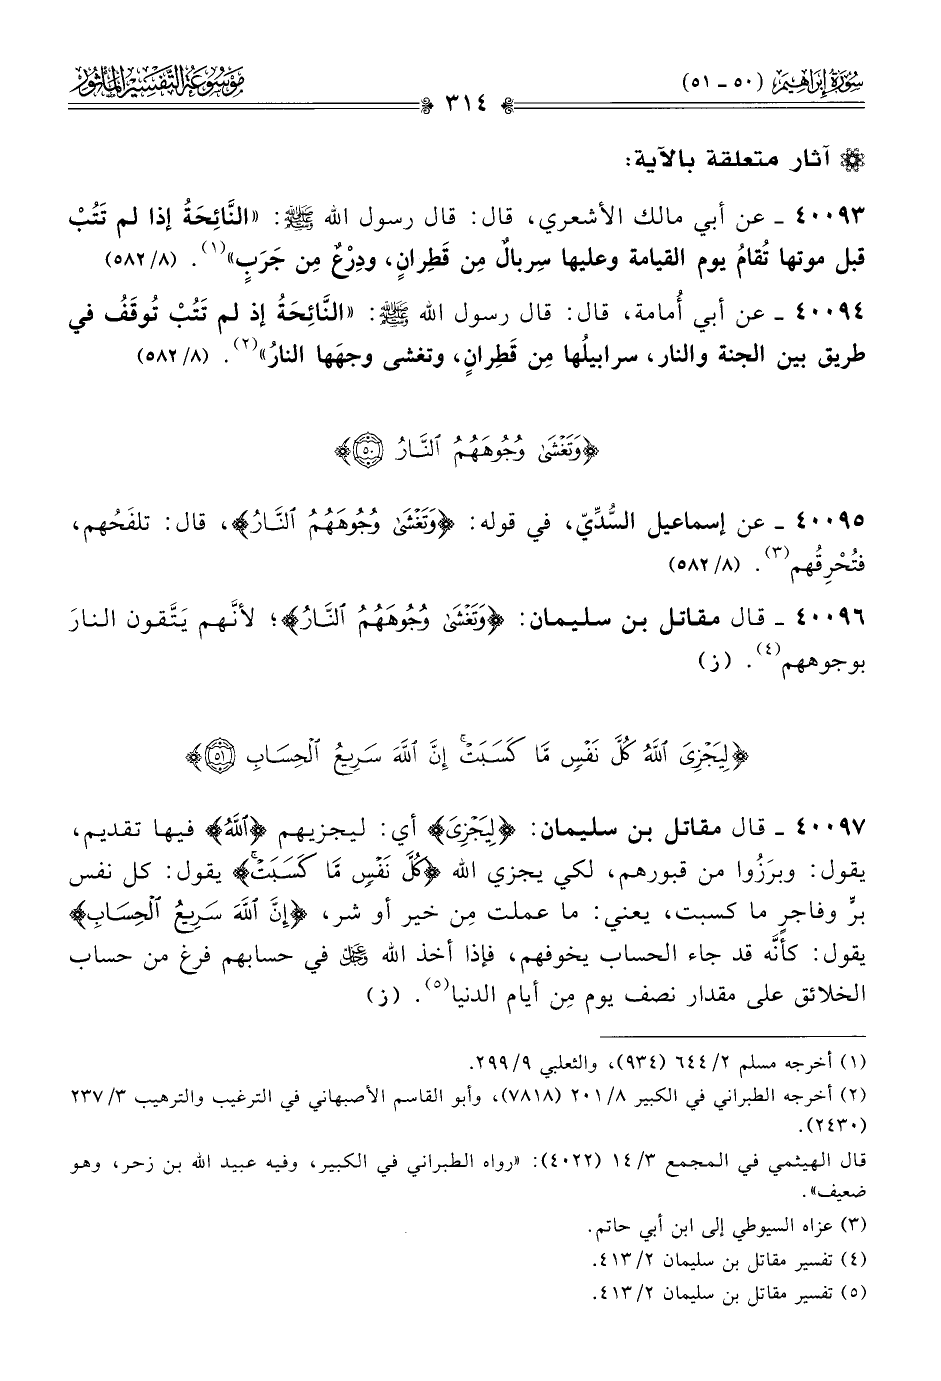 سورة إبراهيم (٥٠ - ٥١)
٣١٤
موسوعة التفسير المأثور
آثار متعلقة بالآية:
٤٠٠٩٣ ـ عن أبي مالك الأشعري، قال: قال رسول الله ﷺ: «النَّائِحَةُ إذا لم تَتُبْ
قبل موتها تُقامُ يوم القيامة وعليها سِربالٌ مِن قَطِرانٍ، ودِرْعٌ مِن جَرَبٍ»(١). (٨/ ٥٨٢)
٤٠٠٩٤ ـ عن أبي أُمامة، قال: قال رسول الله ﷺ: «النَّائِحَةُ إذ لم تَتُبْ تُوقَفُ في
طريق بين الجنة والنار، سرابيلُها مِن قَطِرانٍ، وتغشى وجهَها النارُ»(٢). (٨/ ٥٨٢)
﴿وَتَغْشَىٰ وُجُوهَهُمُ ٱلنَّارُ ٥٠﴾
٤٠٠٩٥ ـ عن إسماعيل السُّدِّيّ، في قوله: ﴿وَتَغْشَىٰ وُجُوهَهُمُ ٱلنَّارُ﴾، قال: تلفَحُهم،
فتُحْرِقُهم(٣). (٨/ ٥٨٢)
٤٠٠٩٦ ـ قال مقاتل بن سليمان: ﴿وَتَغْشَىٰ وُجُوهَهُمُ ٱلنَّارُ﴾؛ لأنَّهم يَتَّقون النارَ
بوجوههم(٤). (ز)
﴿لِيَجْزِىَ ٱللَّهُ كُلَّ نَفْسٍ مَّا كَسَبَتْۚ إِنَّ ٱللَّهَ سَرِيعُ ٱلْحِسَابِ ٥١﴾
٤٠٠٩٧ ـ قال مقاتل بن سليمان: ﴿لِيَجْزِىَ﴾ أي: ليجزيهم ﴿ٱللَّهُ﴾ فيها تقديم،
يقول: وبرَزُوا من قبورهم، لكي يجزي الله ﴿كُلَّ نَفْسٍ مَّا كَسَبَتْۚ﴾ يقول: كل نفس
برٍّ وفاجرٍ ما كسبت، يعني: ما عملت مِن خير أو شر، ﴿إِنَّ ٱللَّهَ سَرِيعُ ٱلْحِسَابِ﴾
يقول: كأنَّه قد جاء الحساب يخوفهم، فإذا أخذ الله ﷿ في حسابهم فرغ من حساب
الخلائق على مقدار نصف يوم مِن أيام الدنيا(٥). (ز)
(١) أخرجه مسلم ٢/ ٦٤٤ (٩٣٤)، والثعلبي ٩/ ٢٩٩.
(٢) أخرجه الطبراني في الكبير ٨/ ٢٠١ (٧٨١٨)، وأبو القاسم الأصبهاني في الترغيب والترهيب ٣/ ٢٣٧
(٢٤٣٠).
قال الهيثمي في المجمع ٣/ ١٤ (٤٠٢٢): «رواه الطبراني في الكبير، وفيه عبيد الله بن زحر، وهو
ضعيف».
(٣) عزاه السيوطي إلى ابن أبي حاتم.
(٤) تفسير مقاتل بن سليمان ٢/ ٤١٣.
(٥) تفسير مقاتل بن سليمان ٢/ ٤١٣.